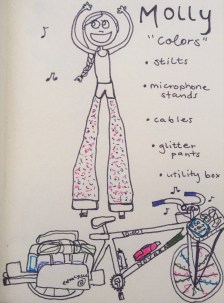 Molly
"colors"
• stilts
• microphone
stands
• cables
• glitter
pants
• utility box